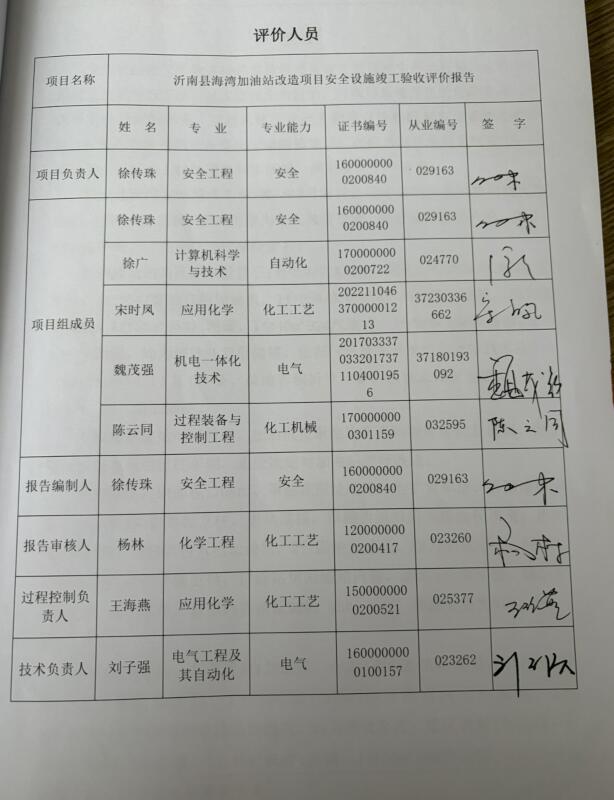 评价人员
项目名称 沂南县海湾加油站改造项目安全设施竣工验收评价报告
姓 名 专 业 专业能力 证书编号 从业编号 签 字
项目负责人 徐传珠 安全工程 安全 160000000
0200840 029163
项目组成员 徐传珠 安全工程 安全 160000000
0200840 029163
徐广 计算机科学
与技术 自动化 170000000
0200722 024770
宋时凤 应用化学 化工工艺 202211046
370000012
13 37230336
662
魏茂强 机电一体化
技术 电气 201703337
033201737
110400195
6 37180193
092
陈云同 过程装备与
控制工程 化工机械 170000000
0301159 032595 陈云同
报告编制人 徐传珠 安全工程 安全 160000000
0200840 029163
报告审核人 杨林 化学工程 化工工艺 120000000
0200417 023260
过程控制负
责人 王海燕 应用化学 化工工艺 150000000
0200521 025377
技术负责人 刘子强 电气工程及
其自动化 电气 160000000
0100157 023262